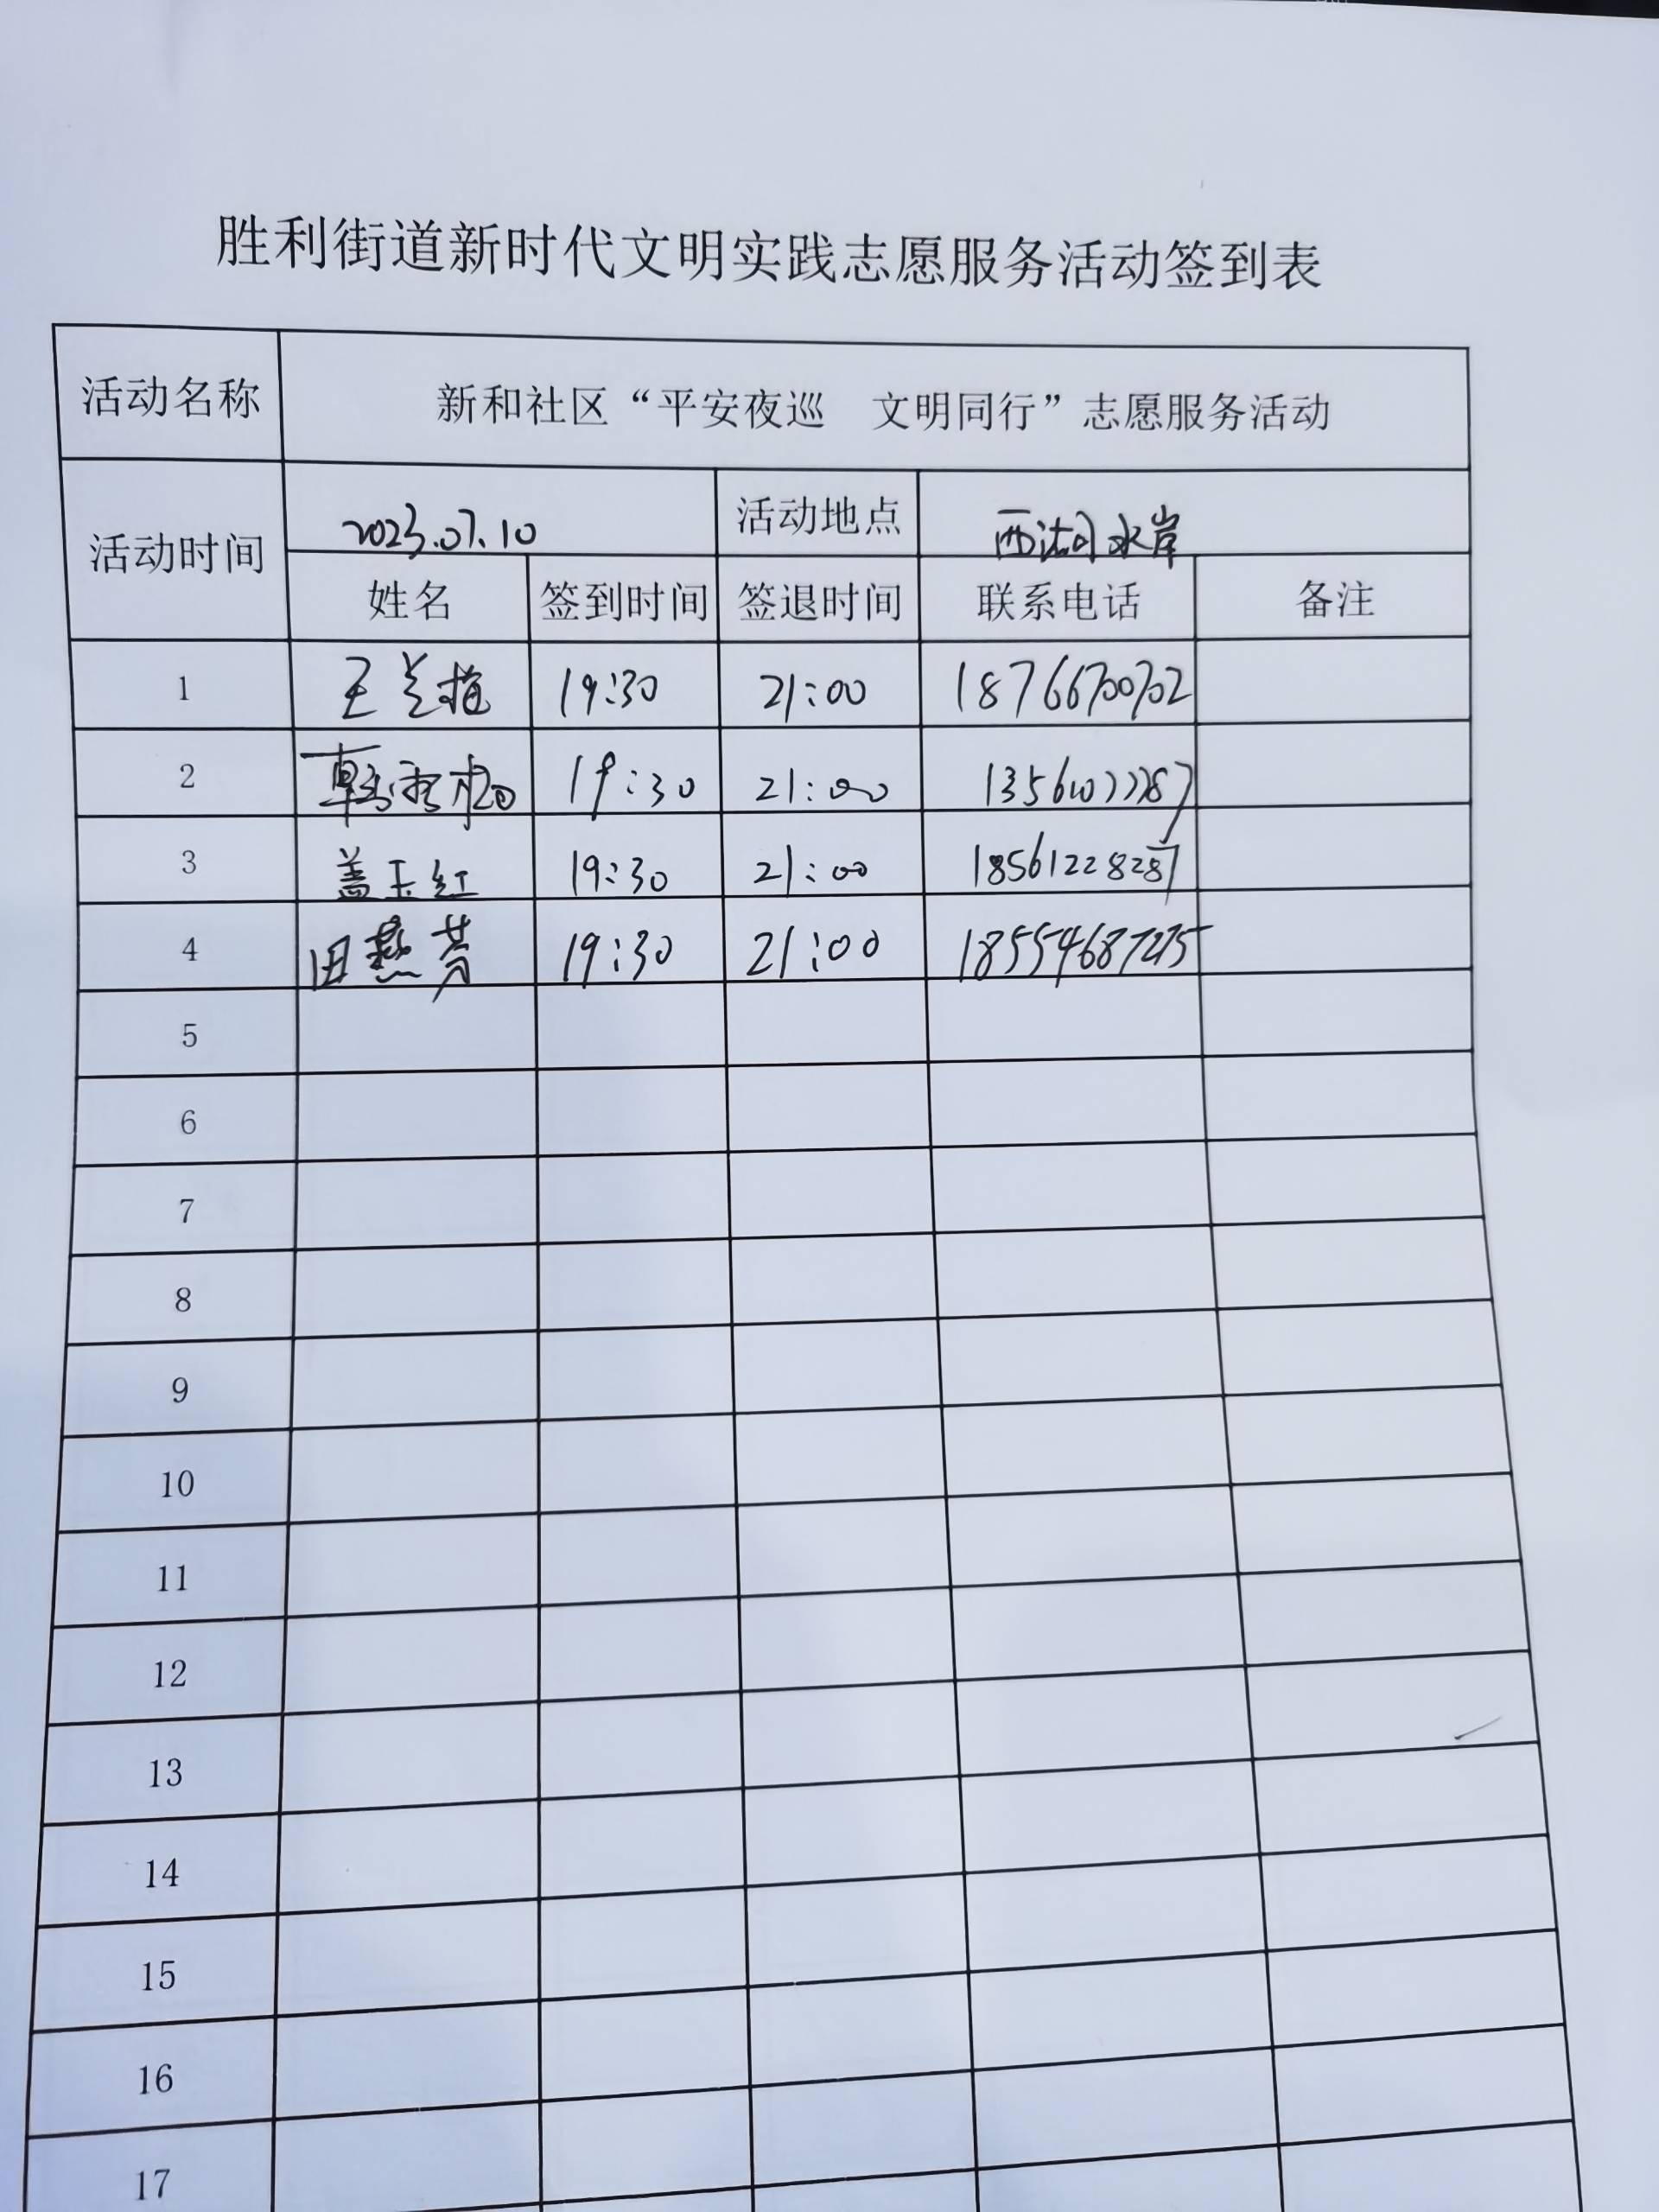 胜利街道新时代文明实践志愿服务活动签到表
活动名称 新和社区“平安夜巡 文明同行”志愿服务活动
活动时间 2023.07.10 活动地点 西湖水岸
姓名 签到时间 签退时间 联系电话 备注
1 王 19:30 21:00 18766700702
2 韩 19:30 21:00
3 盖玉红 19:30 21:00 18561228287
4 田燕芳 19:30 21:00
5
6
7
8
9
10
11
12
13
14
15
16
17